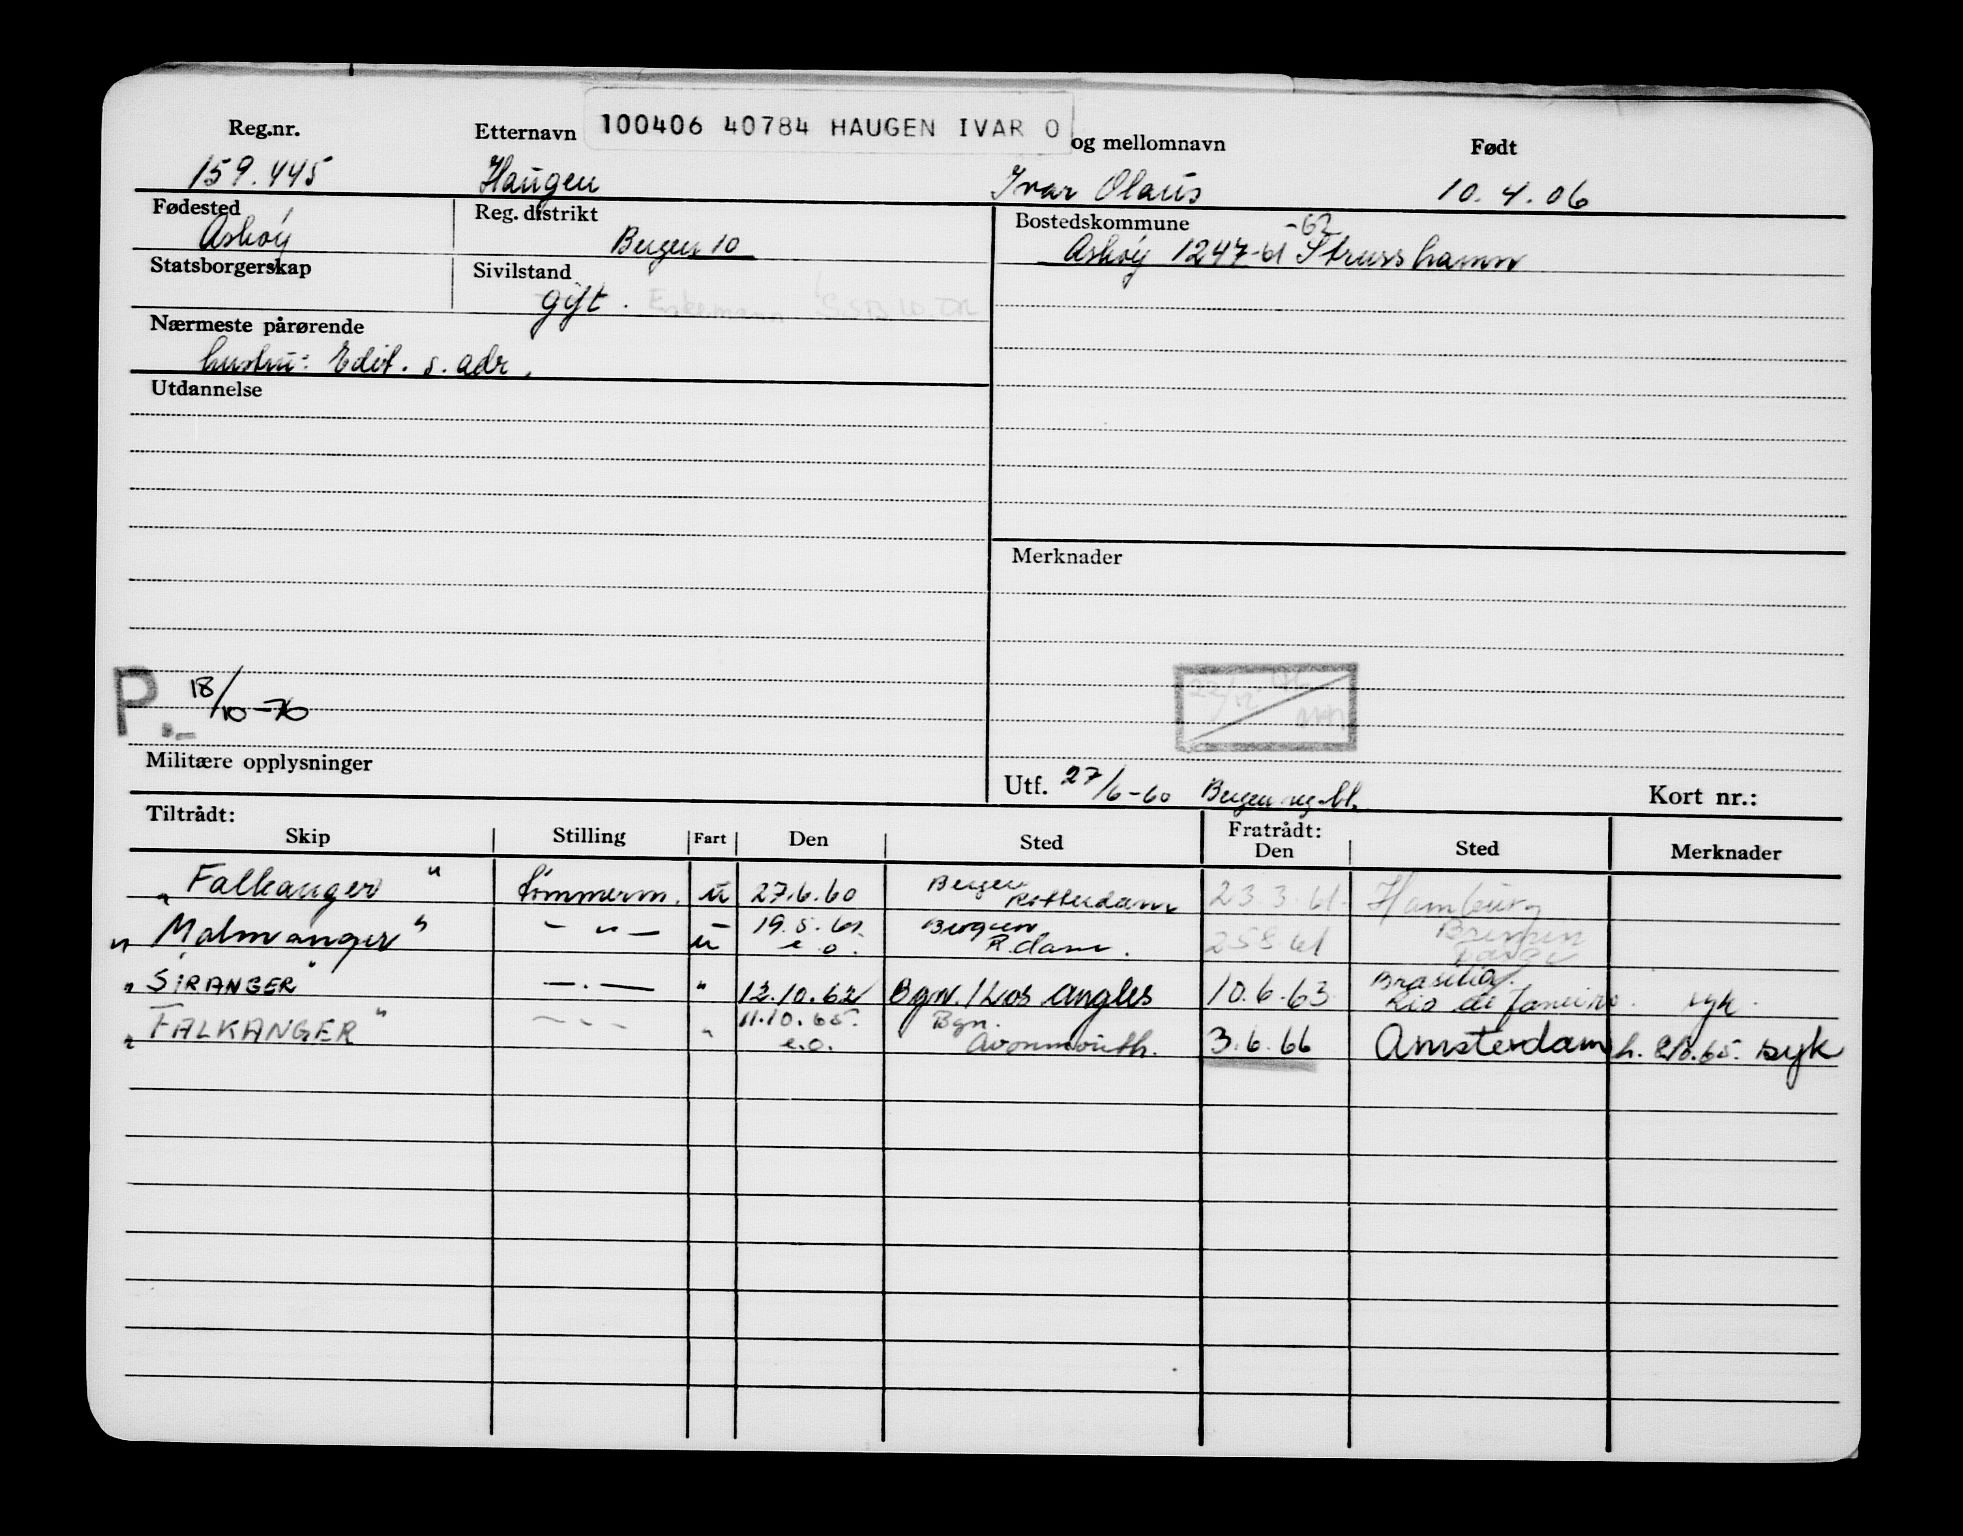 Reg.nr. Etternavn 100406 40784 HAUGEN IVAR O og mellomnavn Født
159.445 Haugen Ivar Olaus 10.4.06
Fødested Reg. distrikt Bostedskommune -62
Askøy Bergen 10 Askøy 1247-61 Strusshamn
Statsborgerskap Sivilstand
gift.
Nærmeste pårørende
hustru: Edit. s. adr.
Utdannelse
Merknader
P. 18/10-76
Militære opplysninger
Utf. 27/6-60 Bergen Kort nr.:
Tiltrådt: Fratrådt:
Skip Stilling Fart Den Sted Den Sted Merknader
"Falkanger" tömmerm. u 27.6.60 Bergen Rotterdam 23.3.61. Hamburg
"Malmanger" - " - u 19.5.61 e.o. Bergen R.dam. 25.8.61 Bremen
"SIRANGER" - . - " 12.10.62 Bgn. / Los Angles 10.6.63 Brasilia. Rio de Janeiro. syk.
"FALKANGER" - . - " 11.10.65. e.o. Bgn. Avonmouth. 3.6.66 Amsterdam syk